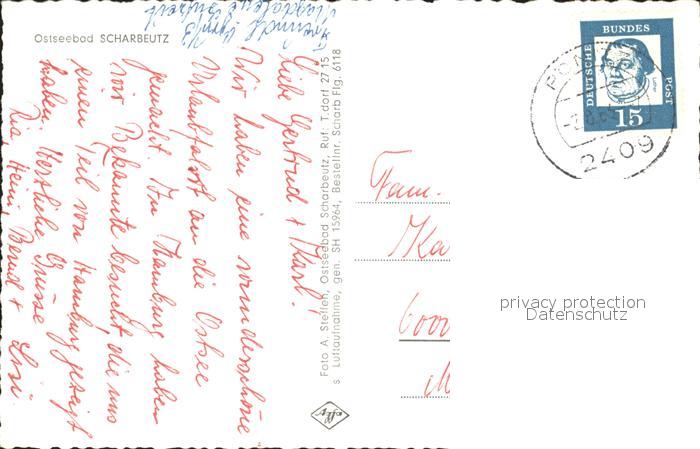 Ostseebad SCHARBEUTZ
Liebe Gertrud + Karl!
Wir haben eine wunderschöne
Urlaubsfahrt an die Ostsee
gemacht. In Hamburg haben
wir Bekannte besucht, die uns
einen Teil von Hamburg gezeigt
haben. Herzliche Grüsse
Ria, Heini, Bernd + Sisi.
Foto A. Steffen, Ostseebad Scharbeutz, Ruf: T.dorf 27 15
s. Luftaufnahme, gen. SH 15964, Bestellnr. Scharb Flg. 6118
Agfa
DEUTSCHE
BUNDES
POST
15
2409
Fam.
Ka
6000
privacy protection
Datenschutz